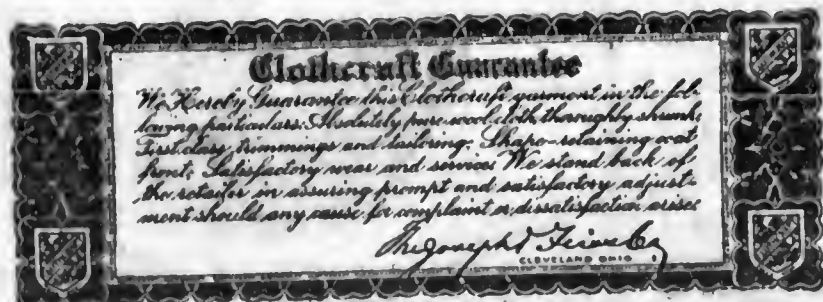 Clothcraft Guarantee
We Hereby Guarantee this Clothcraft garment in the fol-
lowing particulars: Absolutely pure wool cloth thoroughly shrunk.
First class trimmings and tailoring. Shape-retaining coat
front. Satisfactory wear and service. We stand back of
the retailer in assuring prompt and satisfactory adjust-
ment should any cause for complaint or dissatisfaction arise
The Joseph & Feiss Co
CLEVELAND OHIO